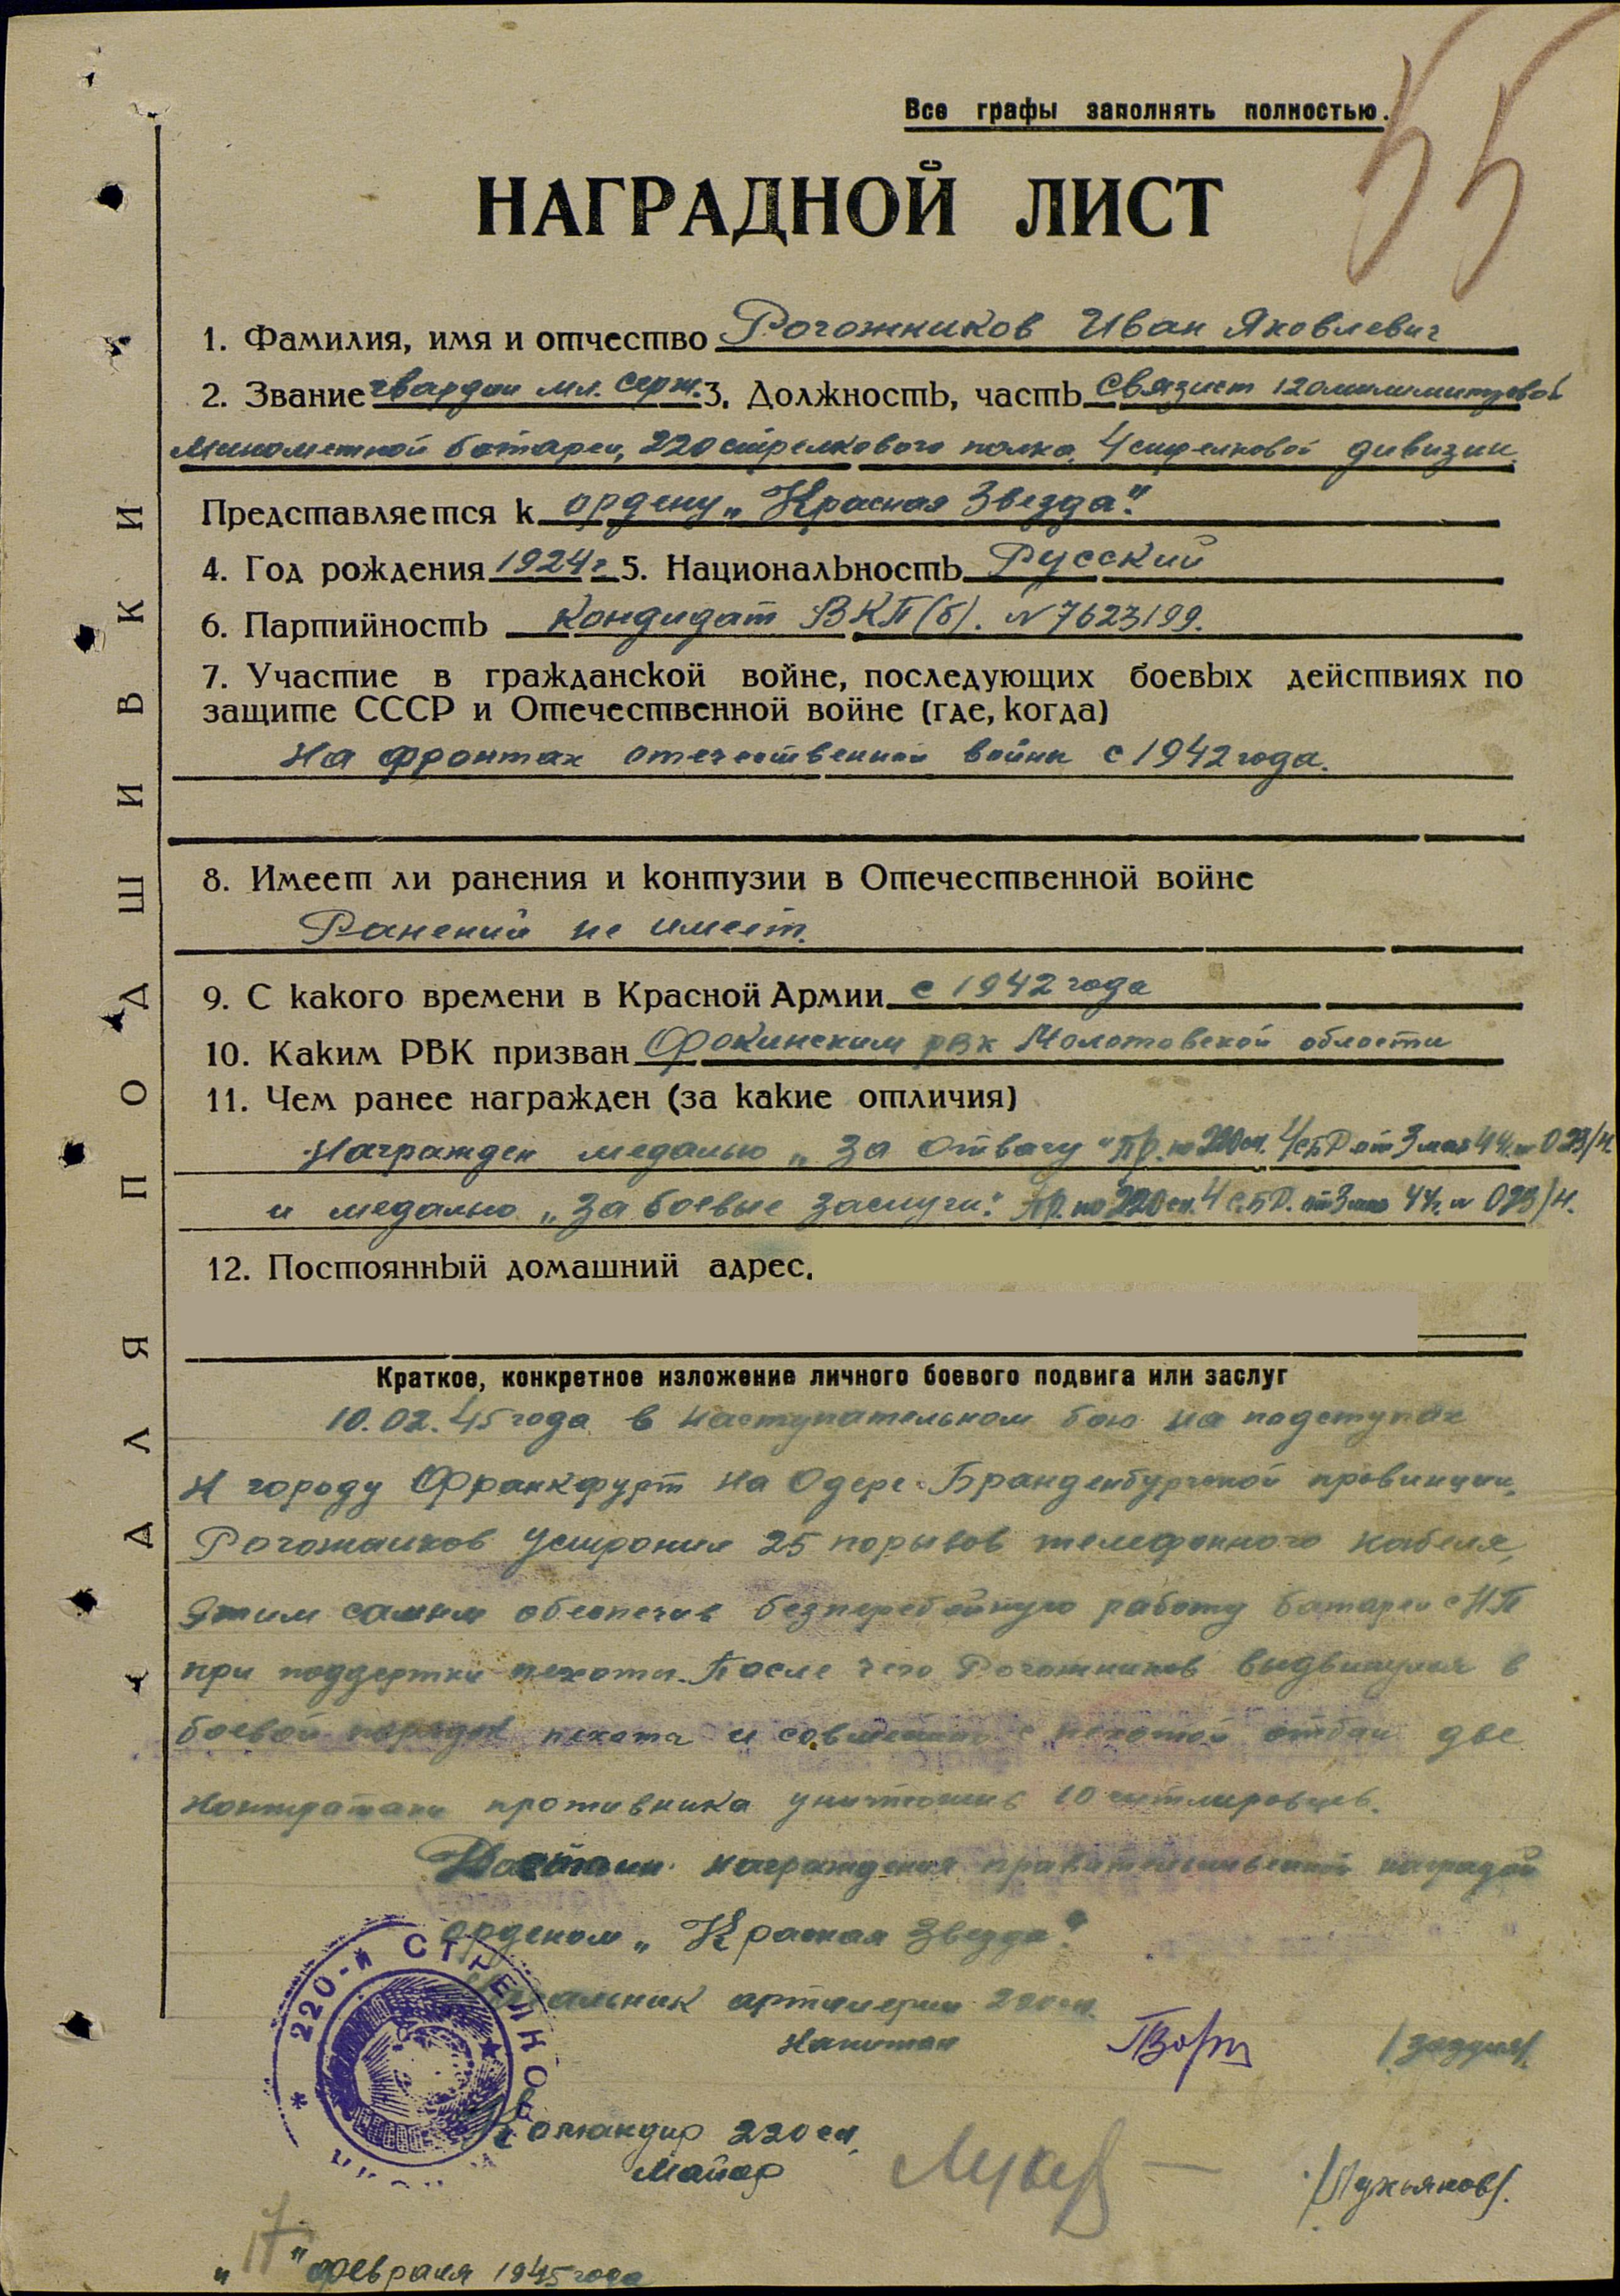 55
Все графы заполнять полностью.
НАГРАДНОЙ ЛИСТ
1. Фамилия, имя и отчество Рогожников Иван Яковлевич
2. Звание гвардии мл. серж. 3. Должность, часть Связист 120 милиметровой
Минометной батареи, 220 стрелкового полка, 4 стрелковой дивизии.
Представляется к ордену „Красная Звезда".
4. Год рождения 1924 г. 5. Национальность Русский
6. Партийность Кондидат ВКП(б). N 7623199.
7. Участие в гражданской войне, последующих боевых действиях по
защите СССР и Отечественной войне (где, когда)
На фронтах отечественной войны с 1942 года.
8. Имеет ли ранения и контузии в Отечественной войне
Ранений не имеет.
9. С какого времени в Красной Армии с 1942 года
10. Каким РВК призван Фокинским рвк Молотовской области
11. Чем ранее награжден (за какие отличия)
Награжден медалью „За Отвагу" Пр. по 220 сп. от 3 мая 44 г. N 023/н.
и медалью „За боевые заслуги". Пр. по 220 сп. от 3 мая 44 г. N 023/н.
12. Постоянный домашний адрес.
Краткое, конкретное изложение личного боевого подвига или заслуг
10.02.45 года в наступательном бою на подступах
к городу Франкфурт на Одере Бранденбургской провинции.
Рогожников устронил 25 порывов телефонного кабеля,
этим самым обеспечив безперебойную работу батареи с НП
при поддержки пехоты. После чего Рогожников выдвинулся в
боевой порядок пехоты и совместно с пехотой отбил две
контратаки противника уничтожив 10 гитлеровцев.
Достоин награждения правительственной наградой
орденом „Красная Звезда".
Начальник артилерии 220 сп.
Капитан
Командир 220 сп,
Майор /Лукьянов/.
„17" февраля 1945 года
220-й СТРЕЛКОВ
ДЛЯ ПОДШИВКИ